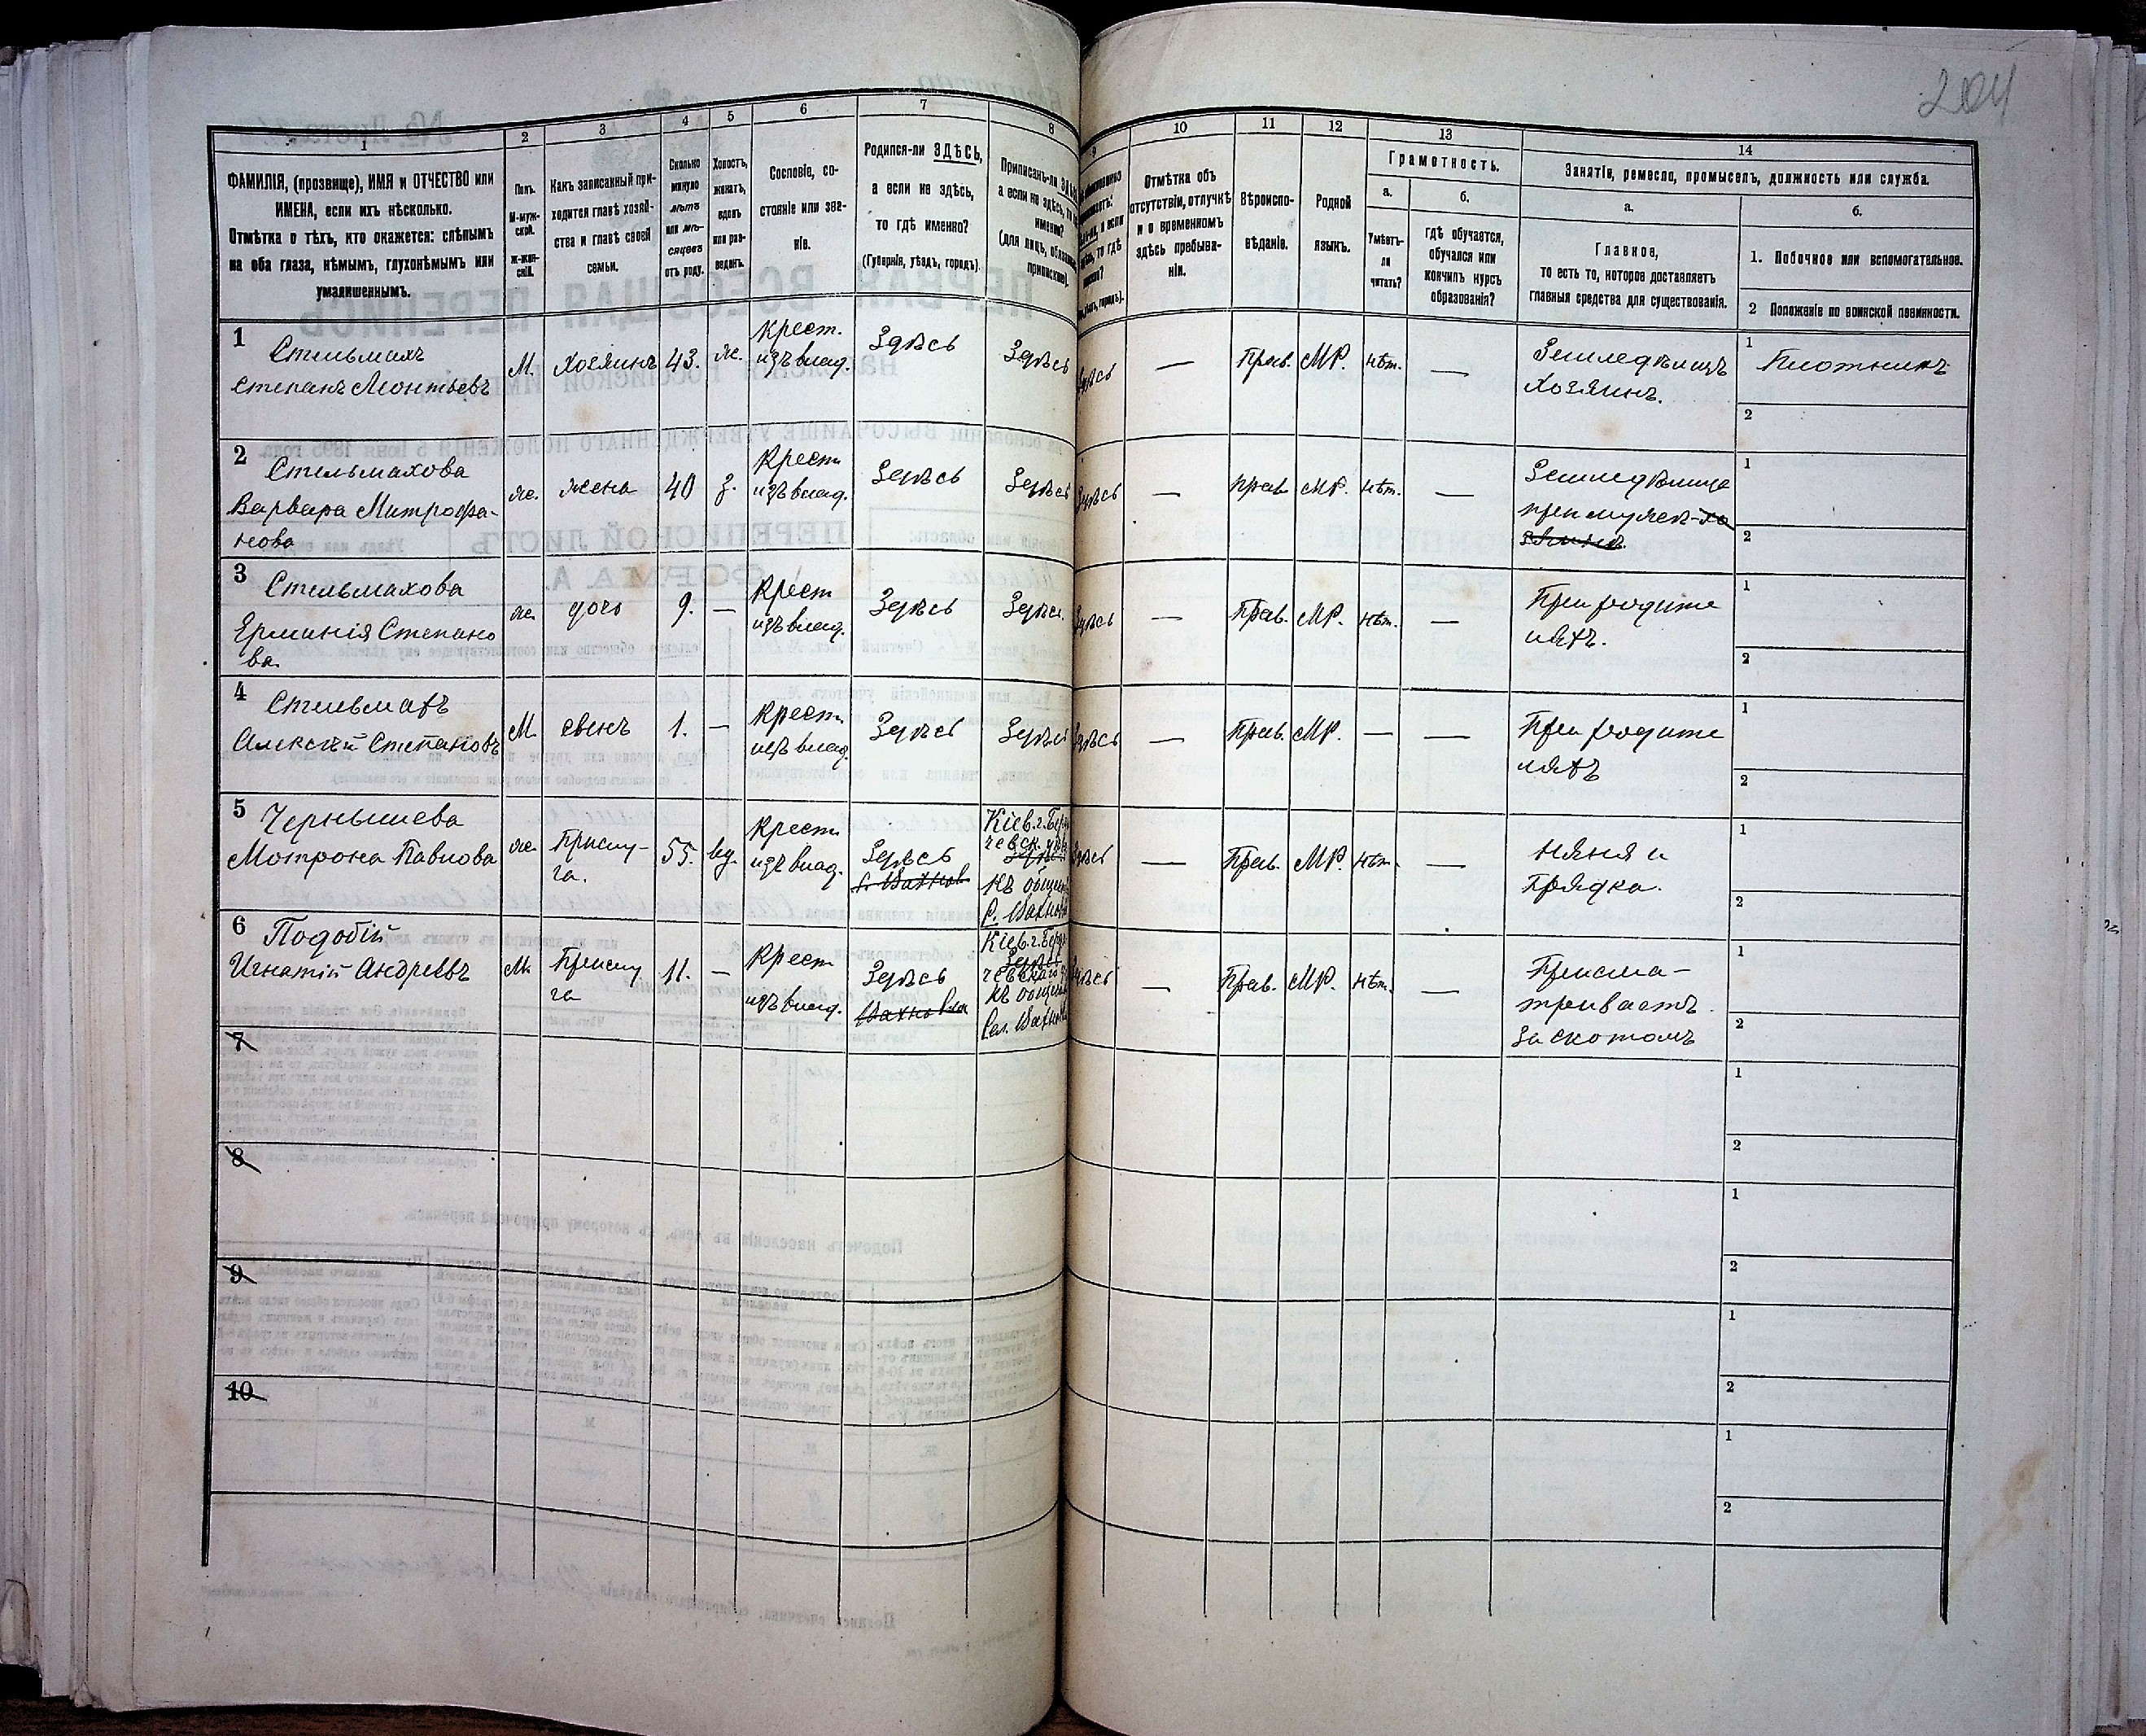 204
1
2
3
4
5
6
7
8
9
10
11
12
13
14
ФАМИЛІЯ, (прозвище), ИМЯ и ОТЧЕСТВО или
ИМЕНА, если ихъ нѣсколько.
Отмѣтка о тѣхъ, кто окажется: слѣпымъ
на оба глаза, нѣмымъ, глухонѣмымъ или
умалишеннымъ.
Полъ.
М-муж-
ской.
Ж-жен-
скій.
Какъ записанный при-
ходится главѣ хозяй-
ства и главѣ своей
семьи.
Сколько
минуло
лѣтъ
или мѣ-
сяцевъ
отъ роду.
Холостъ,
женатъ,
вдовъ
или раз-
веденъ.
Сословіе, со-
стояніе или зва-
ніе.
Родился-ли ЗДѢСЬ,
а если не здѣсь,
то гдѣ именно?
(Губернія, уѣздъ, городъ).
Приписанъ-ли
а если не здѣсь,
именно?
(для лицъ,
Отмѣтка объ
отсутствіи, отлучкѣ
и о временномъ
здѣсь пребыва-
ніи.
Вѣроиспо-
вѣданіе.
Родной
языкъ.
Грамотность.
а.
Умѣетъ-
ли
читать?
б.
гдѣ обучается,
обучался или
кончилъ курсъ
образованія?
Занятіе, ремесло, промыселъ, должность или служба.
а.
Главное,
то есть то, которое доставляетъ
главныя средства для существованія.
б.
1. Побочное или вспомогательное.
2 Положеніе по воинской повинности.
1
Стельмахъ
Степанъ Леонтьевъ
М.
Хозяинъ
43.
ж.
Крест.
изъ влад.
Здѣсь
Здѣсь
Здѣсь
—
Прав.
МР.
нѣт.
—
Земледѣлецъ
Хозяинъ.
1
Плотникъ
2
2
Стельмахова
Варвара Митрофа-
нова
ж.
жена
40
з.
Крест
изъ влад.
Здѣсь
Здѣсь
Здѣсь
—
прав
МР.
нѣт.
—
1
2
3
Стельмахова
Степано
ва.
ж.
дочь
9.
—
Крест
изъ влад.
Здѣсь
Здѣсь
Здѣсь
—
Прав.
МР.
нѣт.
—
При родите
ляхъ.
1
2
4
Стельмахъ
Алексѣй Степановъ
М
сынъ
1.
—
Крест
изъ влад.
Здѣсь
Здѣсь
Здѣсь
—
Прав.
МР.
—
—
При родите
ляхъ
1
2
5
Чернышева
Мотрона Павлова
ж.
Прислу-
га.
55.
вд.
Крест
изъ влад.
Здѣсь
Кіев. г. Берди
чевск.
Здѣсь
—
Прав.
МР.
нѣт.
—
няня и
Прядка.
1
2
6
Подобій
Игнатій Андреевъ
М.
Прислу
га
11.
—
Крест
изъ влад.
Здѣсь
Кіев. г. Берди
Здѣсь
—
Прав.
МР.
нѣт.
—
Присма-
триваетъ
за скотомъ
1
2
7
1
2
8
1
2
9
1
2
10
1
2